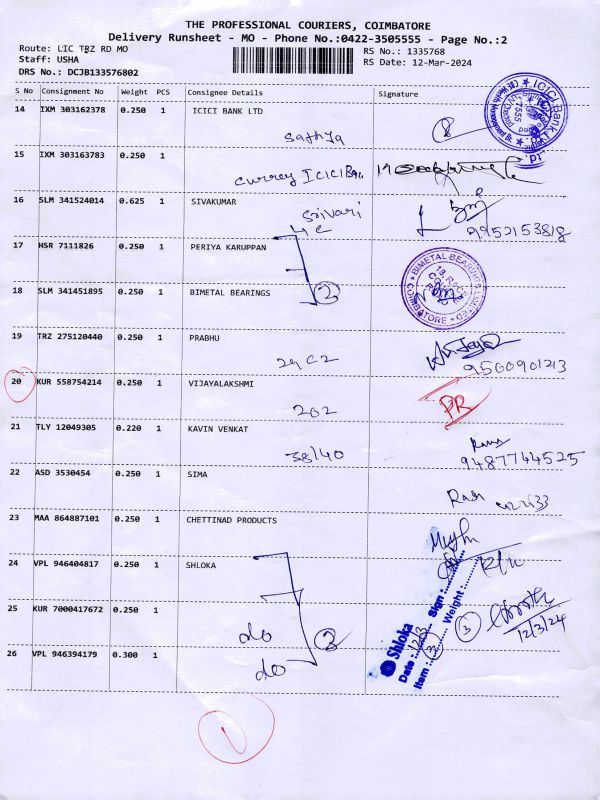 THE PROFESSIONAL COURIERS, COIMBATORE
Delivery Runsheet - MO - Phone No.:0422-3505555 - Page No.:2
Route: LIC TRZ RD MO
RS No.: 1335768
Staff: USHA
RS Date: 12-Mar-2024
DRS No.: DCJB133576802
S No Consignment No Weight PCS Consignee Details Signature
14 IXM 303162378 0.250 1 ICICI BANK LTD
Sathya
15 IXM 303163783 0.250 1
Currey ICICI Ban
16 SLM 341524014 0.625 1 SIVAKUMAR
Srivari
9952153818
17 HSR 7111826 0.250 1 PERIYA KARUPPAN
4C
2
18 SLM 341451895 0.250 1 BIMETAL BEARINGS
BIMETAL BEARINGS LIMITED
COIMBATORE
19 TRZ 275120440 0.250 1 PRABHU
29C2
9500901213
20 KUR 558754214 0.250 1 VIJAYALAKSHMI
202
PR
21 TLY 12049305 0.220 1 KAVIN VENKAT
38/40
9487744525
22 ASD 3530454 0.250 1 SIMA
23 MAA 864887101 0.250 1 CHETTINAD PRODUCTS
24 VPL 946404817 0.250 1 SHLOKA
25 KUR 7000417672 0.250 1
do
2
Shloka
Date : 12/3
Sign :
Item : 3
Weight :
3
12/3/24
26 VPL 946394179 0.300 1
do
1